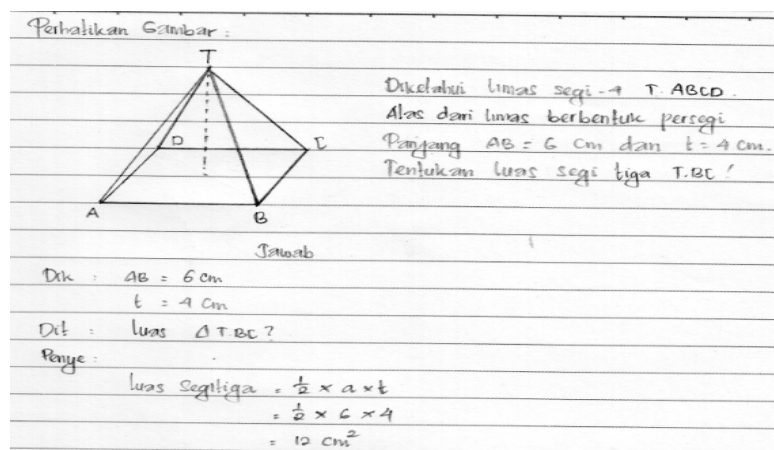 Perhatikan Gambar :
T
Diketahui limas segi-4 T. ABCD.
Alas dari limas berbentuk persegi
D
C
Panjang AB = 6 cm dan t = 4 cm.
Tentukan luas segi tiga T.BC !
A
B
Jawab
Dik : AB = 6 cm
t = 4 cm
Dit : luas Δ T.BC ?
Penye :
luas Segitiga = 1/2 × a × t
= 1/2 × 6 × 4
= 12 cm²